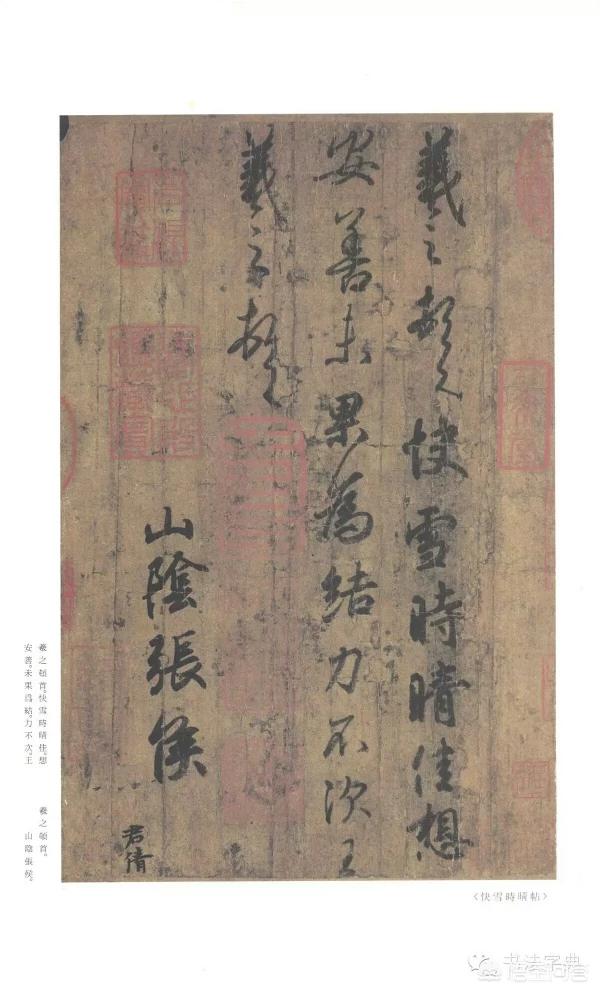 羲之頓首快雪時晴佳想
安善未果為結力不次王
羲之頓首
山陰張侯
君倩
羲之頓首。快雪時晴佳。想
安善。未果爲結。力不次。王
羲之頓首。
山陰張侯。
《快雪時晴帖》
书法字典
悟空问答